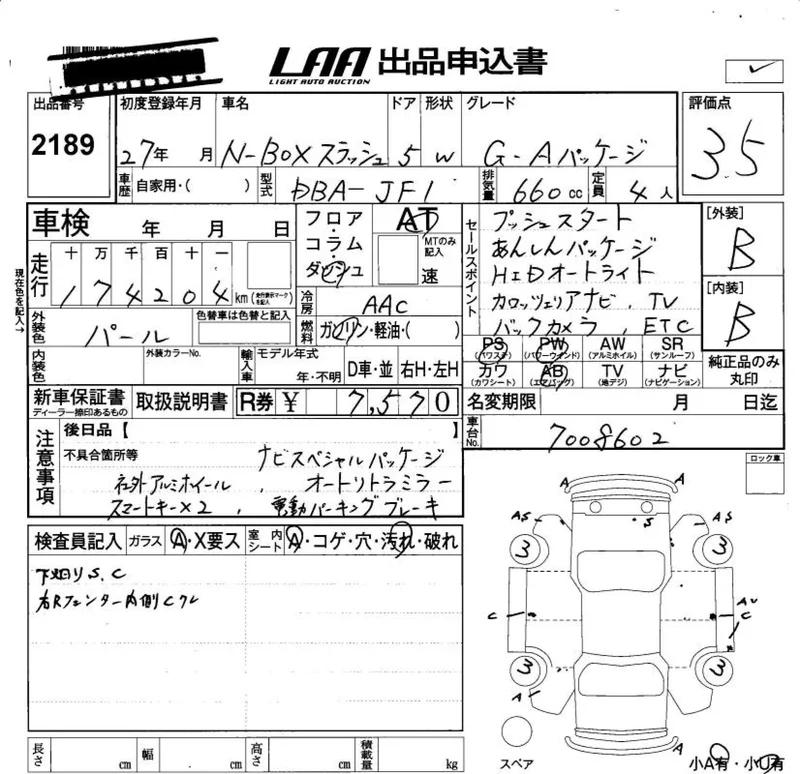 LAA 出品申込書
LIGHT AUTO AUCTION
出品番号 初度登録年月 車名 ドア 形状 グレード 評価点
2189 27年 月 N-BOXスラッシュ 5 W G-Aパッケージ 3.5
車歴 自家用・( ) 型式 DBA-JF1 排気量 660cc 定員 4人
車検 年 月 日 フロア・コラム・ダッシュ AT MTのみ記入 速
走行 十 万 千 百 十 一
174204 km (走行表示マークを記入)
現在色を記入→
冷房 AAC
外装色 パール 色替車は色替と記入 燃料 ガソリン・軽油・( )
内装色 外装カラーNo. 輸入車 モデル年式 年・不明 D車・並 右H・左H
セールスポイント プッシュスタート
あんしんパッケージ
HIDオートライト
カロッツェリアナビ、TV
バックカメラ、ETC
[外装]
B
[内装]
B
PS (パワステ) PW (パワーウインド) AW (アルミホイル) SR (サンルーフ)
カワ (カワシート) AB (エアバッグ) TV (地デジ) ナビ (ナビゲーション)
純正品のみ丸印
新車保証書 ディーラー捺印あるもの 取扱説明書 R券 ¥ 7,570 名変期限 月 日迄
車台No. 7008602
注意事項 後日品【 】
不具合箇所等 ナビスペシャルパッケージ
社外アルミホイール、オートリトラミラー
スマートキー×2、電動パーキングブレーキ
ロック車
検査員記入 ガラス A・X要ス 室内シート A・コゲ・穴・汚れ・破れ
下廻りS.C
右Rフェンター内側Cクレ
A A
AS S AS
3 3
C AU
C
3 3
A
A
スペア
小A有・小U有
長さ cm 幅 cm 高さ cm 積載量 kg